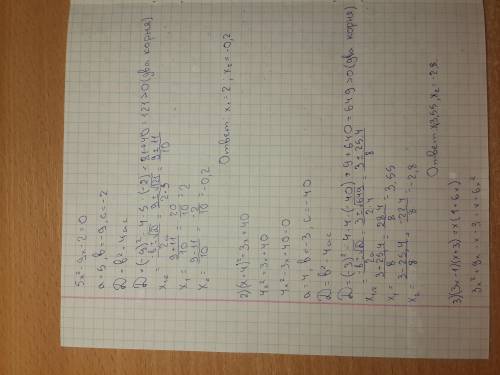 5x² - 9x - 2 = 0
a = 5, b = -9, c = -2
D = b² - 4ac
D = (-9)² - 4·5·(-2) = 81+40 = 121 > 0 (два корня)
x₁,₂ = (-b ± √D)/2a = (9 ± √121)/(2·5) = (9 ± 11)/10
x₁ = (9+11)/10 = 20/10 = 2
x₂ = (9-11)/10 = -2/10 = -0,2
Ответ: x₁ = 2; x₂ = -0,2
2) (x-4)² = 3x+40
4x² = 3x+40
4x² - 3x - 40 = 0
a = 4, b = -3, c = -40
D = b² - 4ac
D = (-3)² - 4·4·(-40) = 9 + 640 = 649 > 0 (два корня)
x₁,₂ = (-b ± √D)/2a = (3 ± √649)/(2·4) = (3 ± 25,4)/8
x₁ = (3+25,4)/8 = 28,4/8 = 3,55
x₂ = (3-25,4)/8 = -22,4/8 = -2,8
Ответ: x₁ 3,55, x₂ = -2,8
3) (3x-1)(x+3) = x(1+6x)
3x² + 9x - x - 3 = x + 6x²